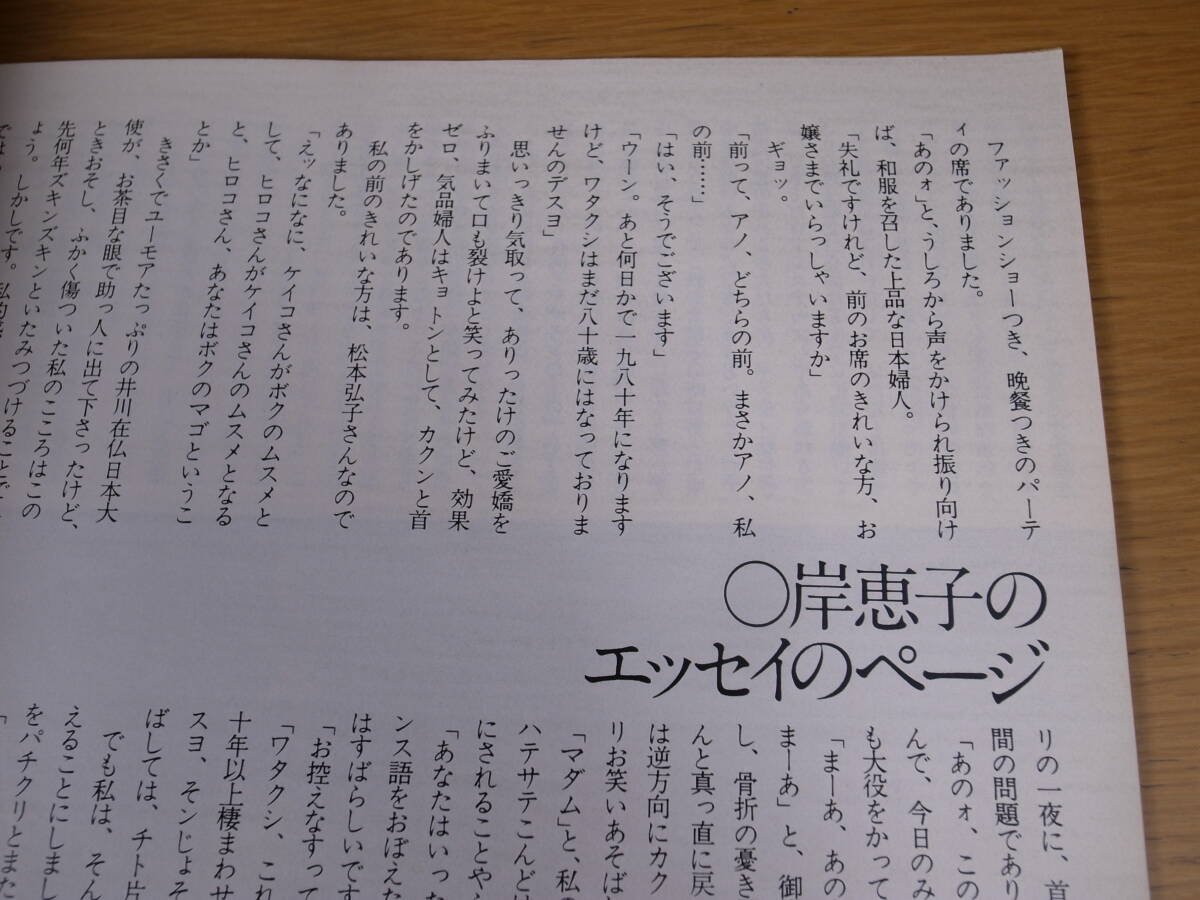 ファッションショーつき、晩餐つきのパーテ
ィの席でありました。
「あのォ」と、うしろから声をかけられ振り向け
ば、和服を召した上品な日本婦人。
「失礼ですけれど、前のお席のきれいな方、お
嬢さまでいらっしゃいますか」
ギョッ。
「前って、アノ、どちらの前。まさかアノ、私
の前……」
「はい、そうでございます」
「ウーン。あと何日かで一九八十年になります
けど、ワタクシはまだ八十歳にはなっておりま
せんのデスヨ」
思いっきり気取って、ありったけのご愛嬌を
ふりまいて口も裂けよと笑ってみたけど、効果
ゼロ、気品婦人はキョトンとして、カクンと首
をかしげたのであります。
私の前のきれいな方は、松本弘子さんなので
ありました。
「えッなになに、ケイコさんがボクのムスメと
して、ヒロコさんがケイコさんのムスメとなる
と、ヒロコさん、あなたはボクのマゴというこ
とか」
きさくでユーモアたっぷりの井川在仏日本大
使が、お茶目な眼で助っ人に出て下さったけど、
ときおそし、ふかく傷ついた私のこころはこの
先何年ズキンズキンといたみつづけることでし
ょう。しかしです。私的
〇岸恵子の
エッセイのページ
リの一夜に、首
間の問題であり
「あのォ、この
んで、今日のみ
も大役をかって
「まーあ、あの
まーあ」と、御
し、骨折の憂き
んと真っ直に戻
は逆方向にカク
りお笑いあそば
「マダム」と、私の
ハテサテこんど
にされることや
「あなたはいった
ンス語をおぼえた
はすばらしいです
「お控えなすって
「ワタクシ、これ
十年以上棲まわせ
スヨ、そンじょそ
ばしては、チト片
でも私は、そん
えることにしまし
をパチクリとまた